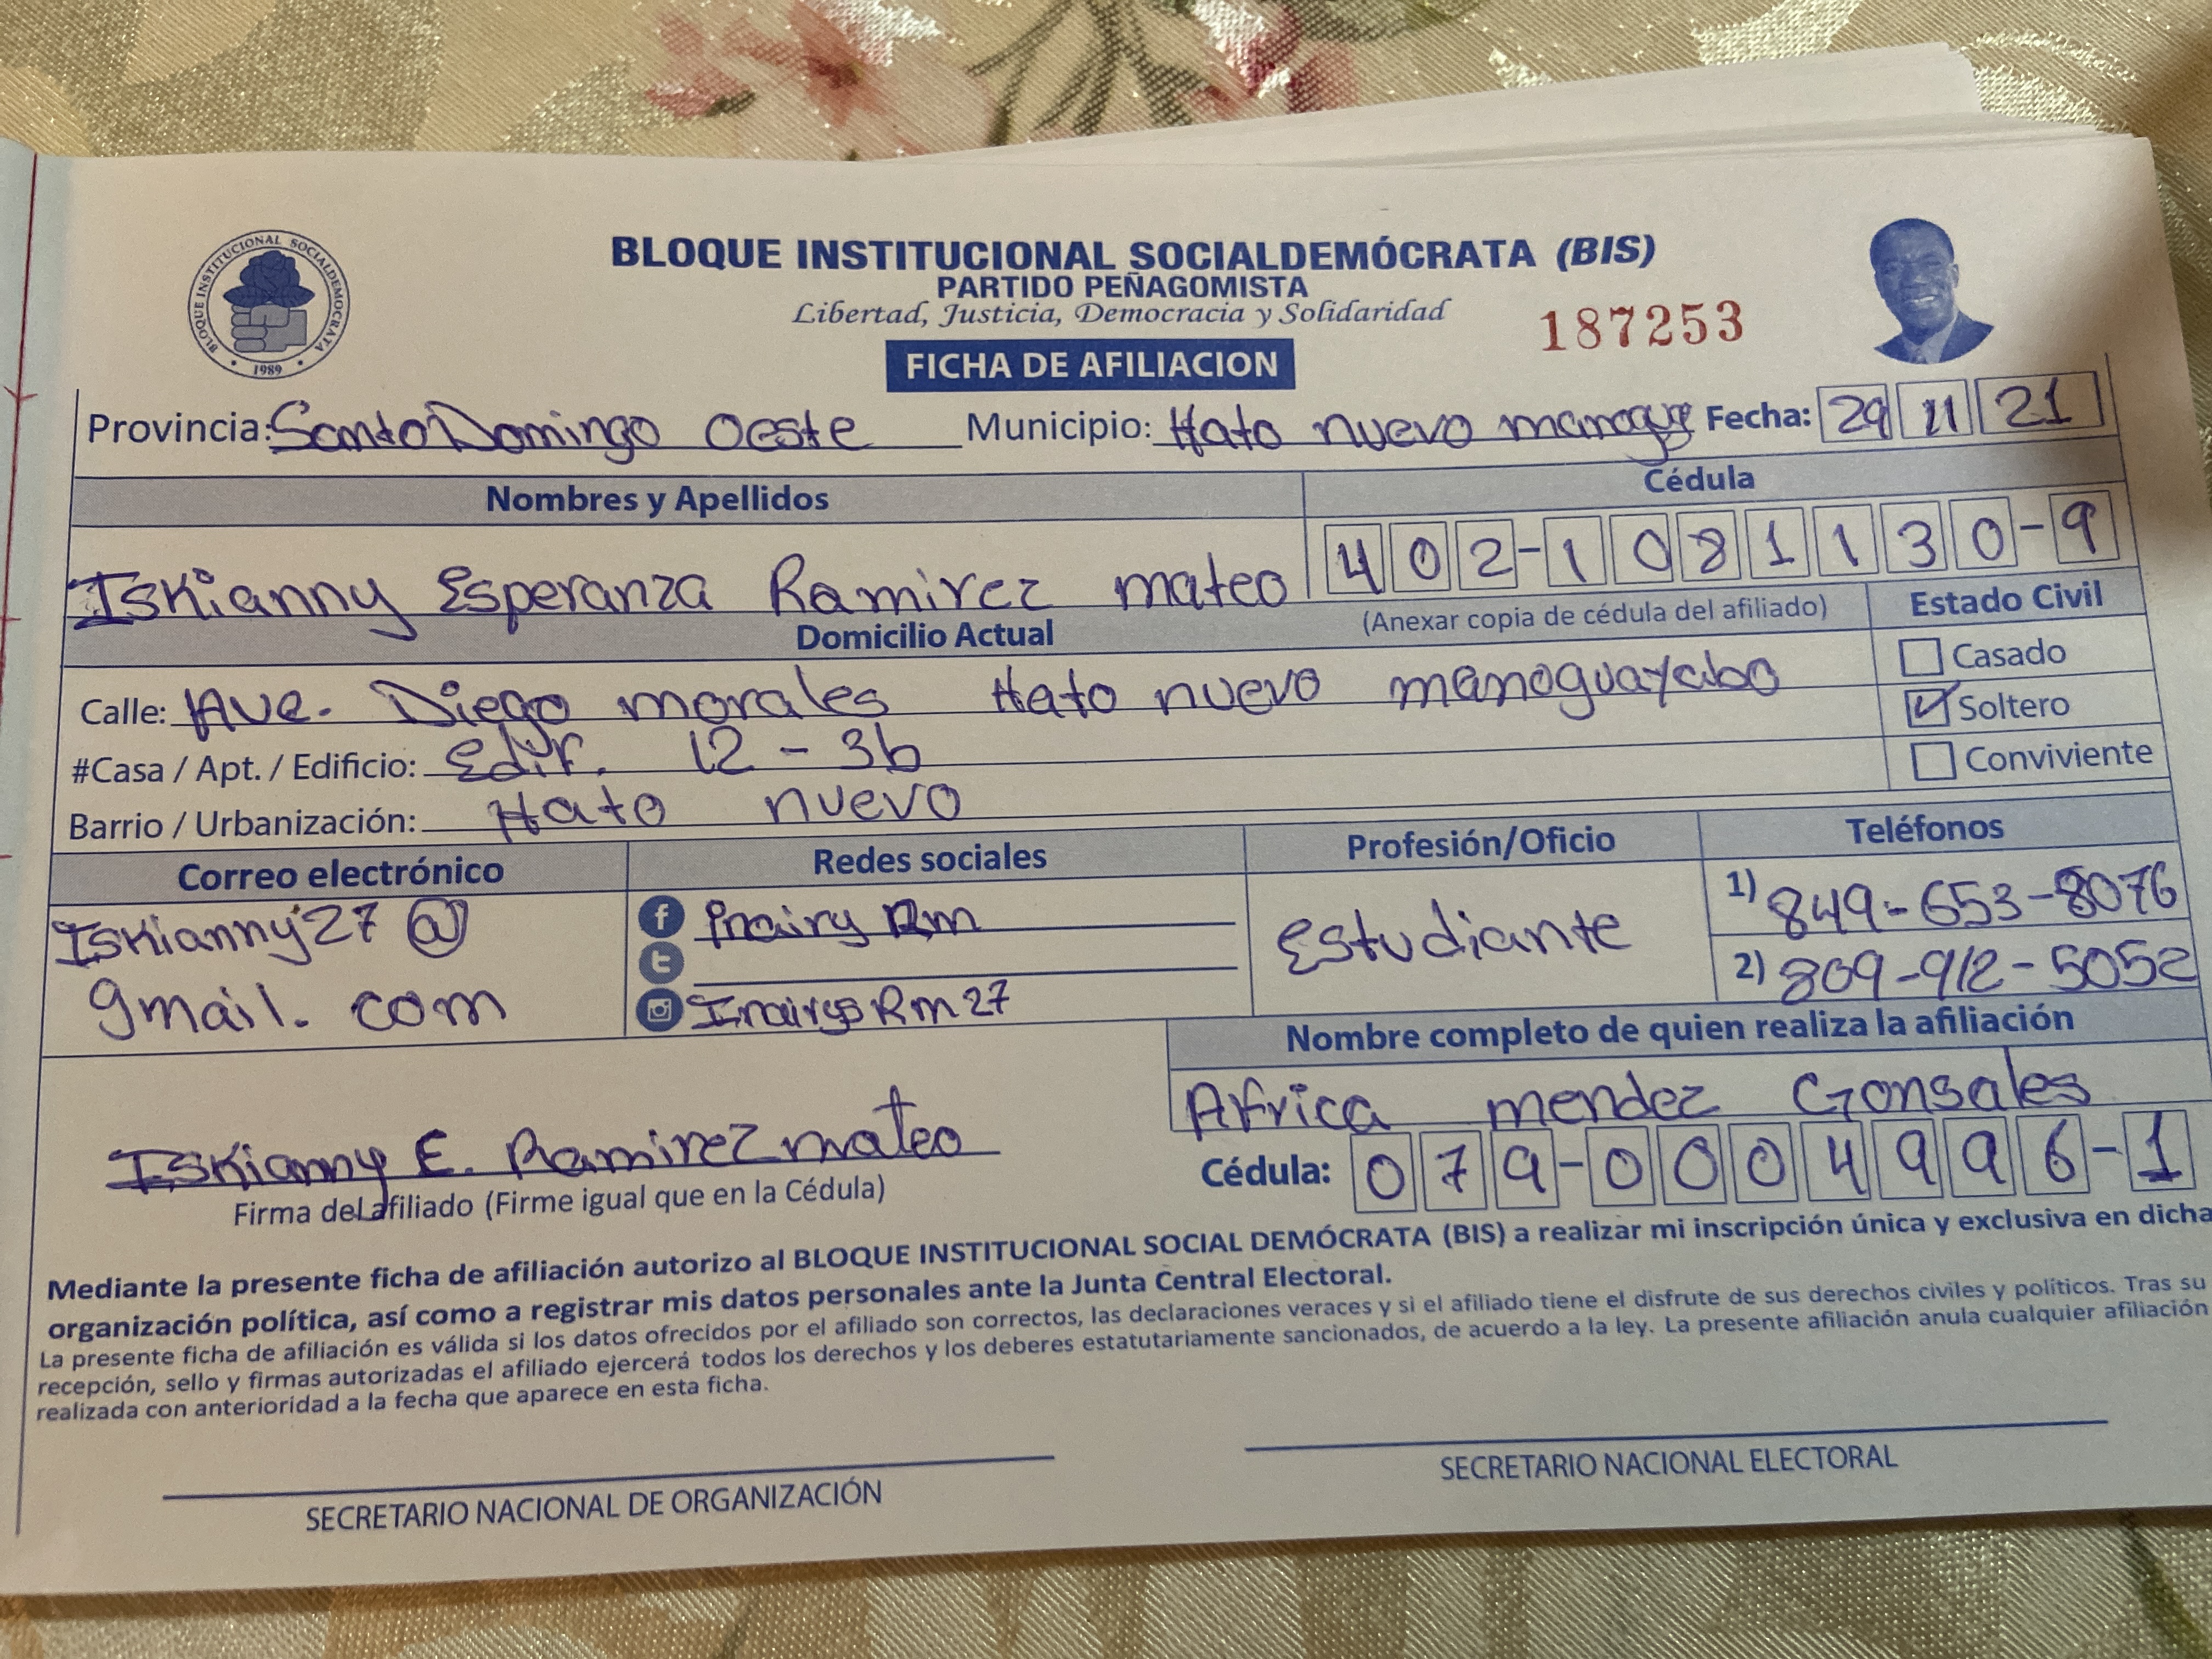 BLOQUE INSTITUCIONAL SOCIALDEMOCRATA
1989
BLOQUE INSTITUCIONAL SOCIALDEMÓCRATA (BIS)
PARTIDO PEÑAGOMISTA
Libertad, Justicia, Democracia y Solidaridad
187253
FICHA DE AFILIACION
Provincia: Santo Domingo Oeste Municipio: Hato nuevo Fecha: 29 11 21
Nombres y Apellidos Cédula
Iskianny Esperanza Ramirez mateo 402-1081130-9
(Anexar copia de cédula del afiliado) Estado Civil
Domicilio Actual
Casado
Calle: Ave. Diego morales Hato nuevo manoguayabo
Soltero
#Casa / Apt. / Edificio: Edif. 12 - 3b
Conviviente
Barrio / Urbanización: Hato nuevo
Correo electrónico Redes sociales Profesión/Oficio Teléfonos
Iskianny27@
gmail.com
f Rm
t
Rm27
Estudiante
1) 849-653-8076
2) 809-912-5052
Nombre completo de quien realiza la afiliación
Africa mendez Gonsales
Iskianny E. Ramirez mateo
Cédula: 079-0004996-1
Firma del afiliado (Firme igual que en la Cédula)
Mediante la presente ficha de afiliación autorizo al BLOQUE INSTITUCIONAL SOCIAL DEMÓCRATA (BIS) a realizar mi inscripción única y exclusiva en dicha
organización política, así como a registrar mis datos personales ante la Junta Central Electoral.
La presente ficha de afiliación es válida si los datos ofrecidos por el afiliado son correctos, las declaraciones veraces y si el afiliado tiene el disfrute de sus derechos civiles y políticos. Tras su
recepción, sello y firmas autorizadas el afiliado ejercerá todos los derechos y los deberes estatutariamente sancionados, de acuerdo a la ley. La presente afiliación anula cualquier afiliación
realizada con anterioridad a la fecha que aparece en esta ficha.
SECRETARIO NACIONAL DE ORGANIZACIÓN
SECRETARIO NACIONAL ELECTORAL